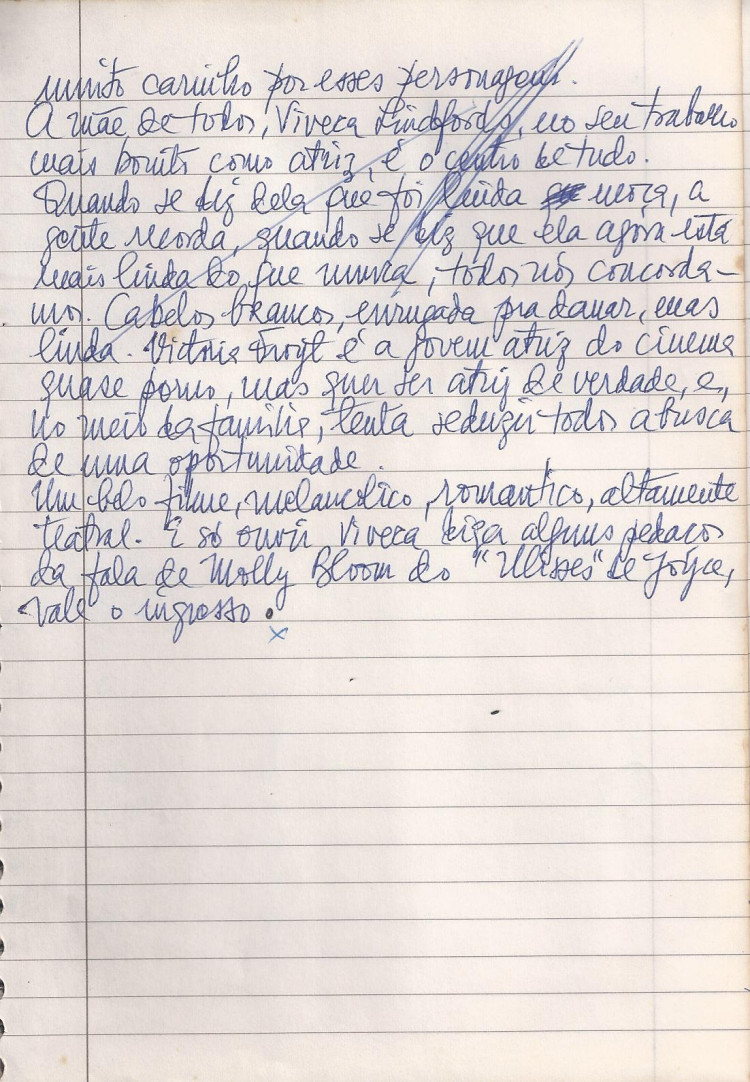 muito carinho por esses personagens.
A mãe de todos, Viveca Lindfords, no seu trabalho
mais bonito como atriz, é o centro de tudo.
Quando se diz dela que foi linda moça, a
gente recorda, quando se diz que ela agora está
mais linda do que nunca, todos nós concorda-
mos. Cabelos brancos, enrugada pra danar, mas
linda. Victoria Froyt é a jovem atriz do cinema
quase porno, mas quer ser atriz de verdade, e,
no meio da familia, tenta seduzir todos a busca
de uma oportunidade.
Um belo filme, melancolico, romantico, altamente
teatral. E só ouvir Viveca diga alguns pedaços
da fala de Molly Bloom do "Ulisses" de Joyce,
vale o ingresso.
x